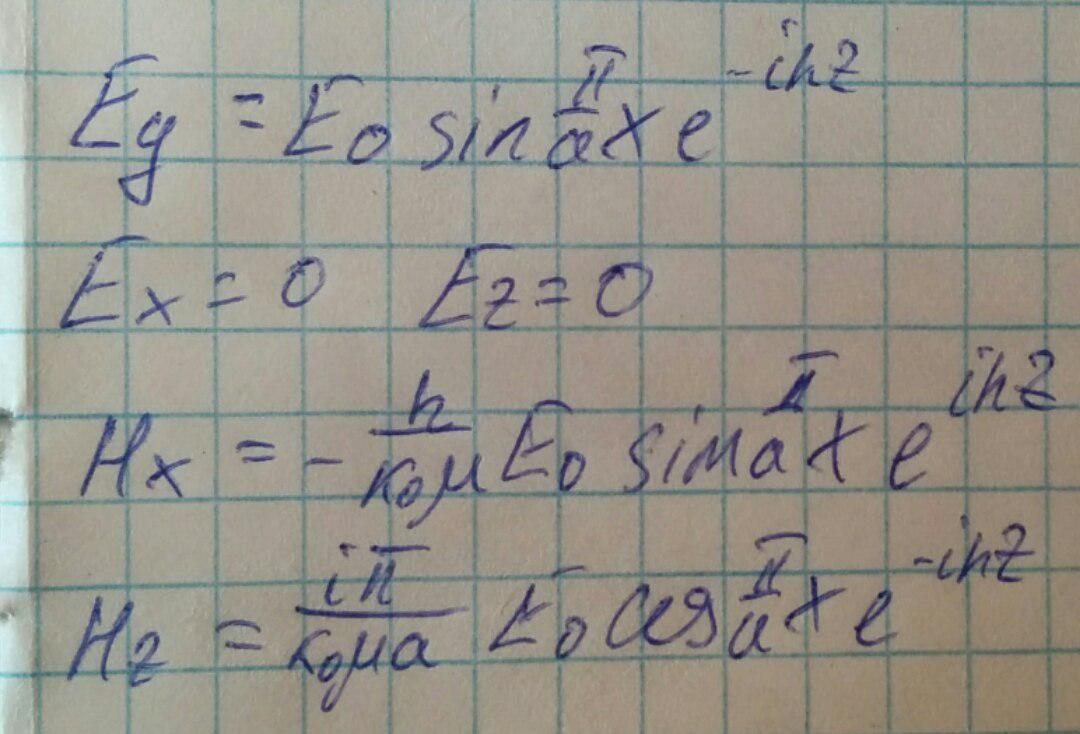 Ey = E₀ sin π/a x e^{-ihz}
Ex = 0 Ez = 0
Hx = - h/(k₀μ) E₀ sin π/a x e^{ihz}
Hz = iπ/(k₀μa) E₀ cos π/a x e^{-ihz}